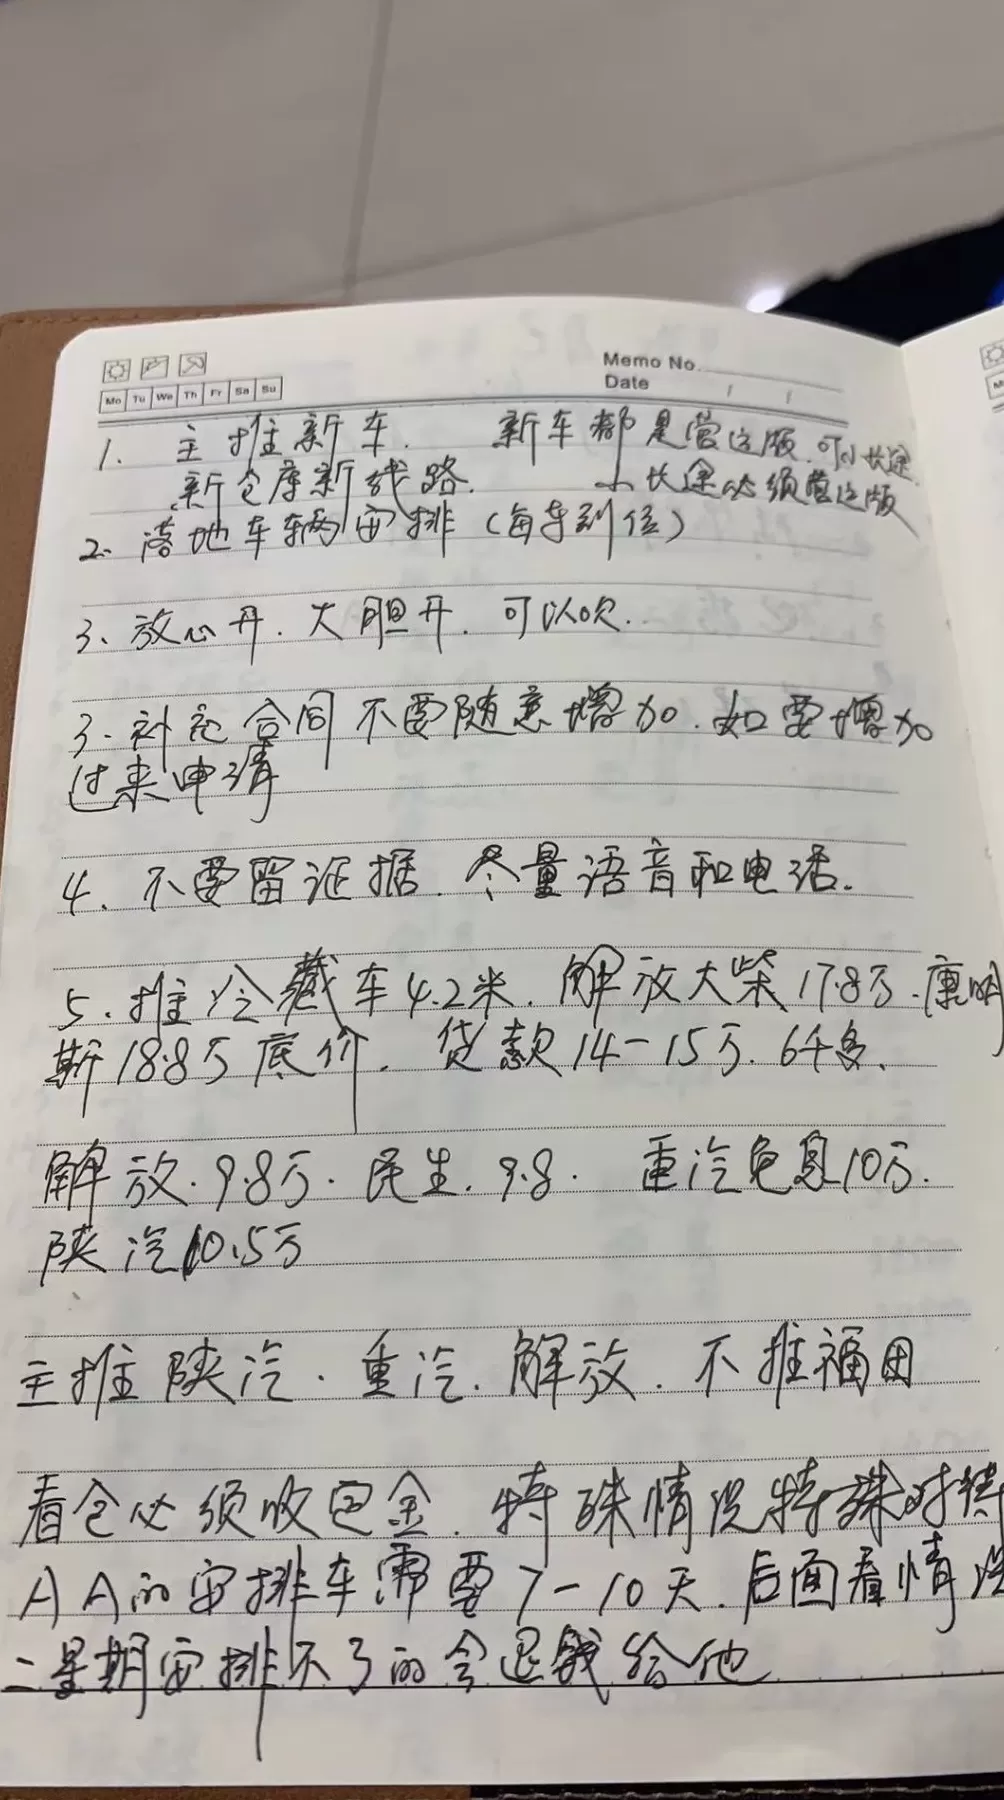 Memo No.
Date / /
Mo Tu We Th Fr Sa Su
1. 主推新车. 新车都是营运版.可小长途
新仓库新线路. 小长途必须营运版
2. 落地车辆安排(每车到位)
3、放心开.大胆开.可以吹.
3.补充合同不要随意增加.如要增加
过来申请
4.不要留证据.尽量语音和电话.
5.推冷藏车4.2米.解放大柴17.8万.康明
斯18.8万底价.贷款14-15万.6千多.
解放.9.8万.民生.9.8. 重汽免息10万.
陕汽10.5万
主推陕汽.重汽.解放.不推福田
看仓必须收定金.特殊情况特殊对待
AA的安排车需要7-10天.后面看情况
二星期安排不了的会退钱给他